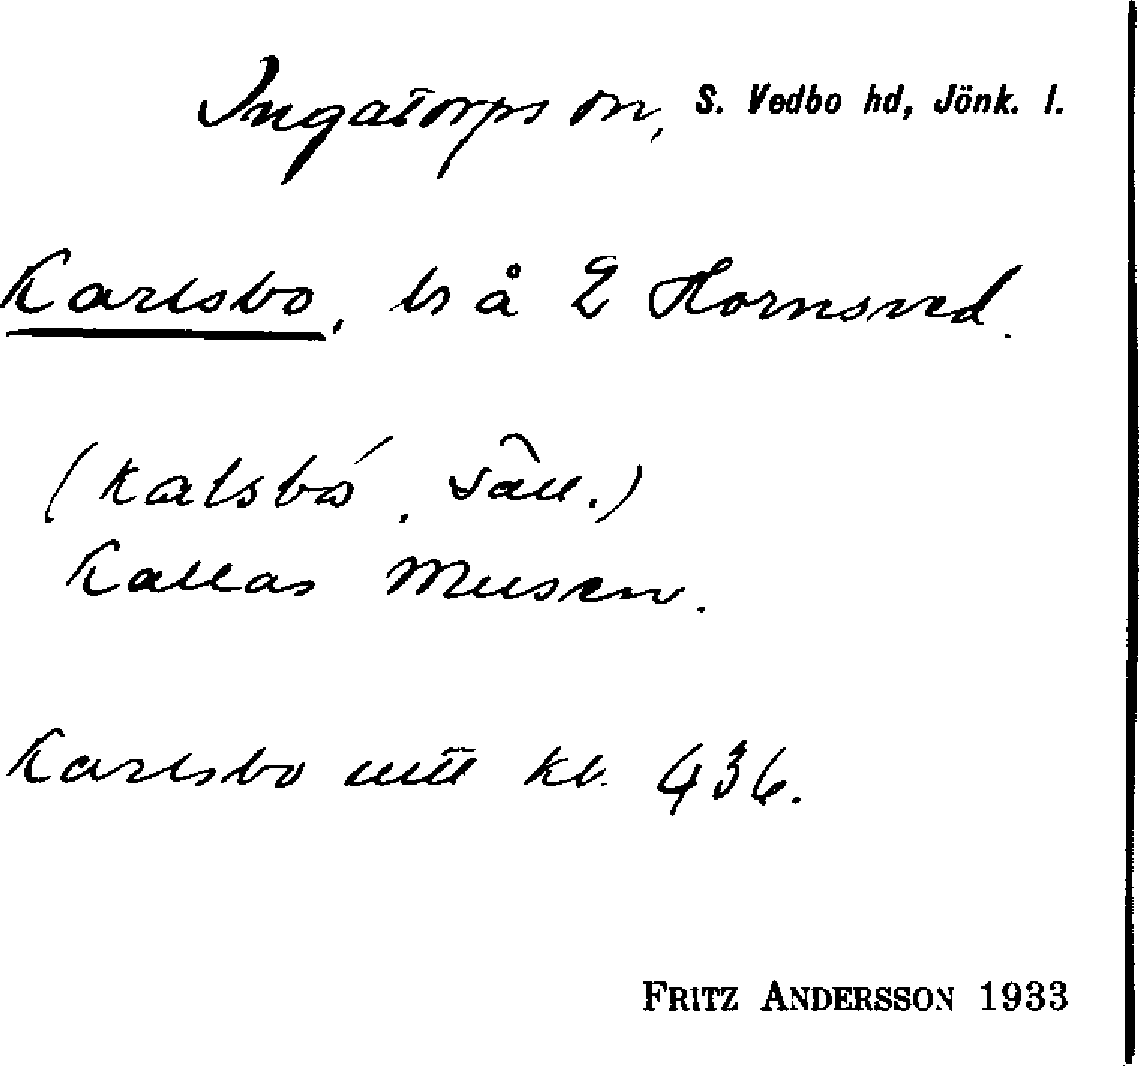 Ingatorps sn, S. Vedbo hd, Jönk. l.
Karlsbo, ls å 2 Hornsved.
(kalsbó, säll.)
Kallas Musen.
Karlsbo utt kb. 436.
FRITZ ANDERSSON 1933